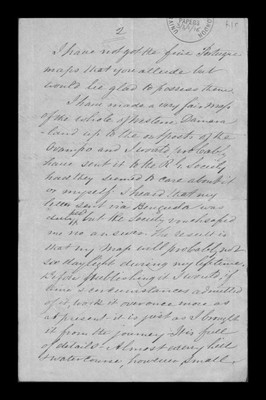 2
PAPERS
I have not got the fine Portugese
maps that you allude but
would be glad to possess them.
I have made a very fair map
of the whole of western Damara
-land up to the outposts of the
Ovampo and I would probably
have sent it to the R G Society
had they seemed to care about it
or myself I heard that my
letter sent via Benguela was
duly but the Society vouchsafed
me no answer. The result is
that my map will probably not
see daylight during my lifetime.
Before publishing it I would, if
time & circumstances admitted
of it, work it over once more as
at present it is just as I brought
it from the journey. It is full
of details. Almost every hill
& watercourse, however small